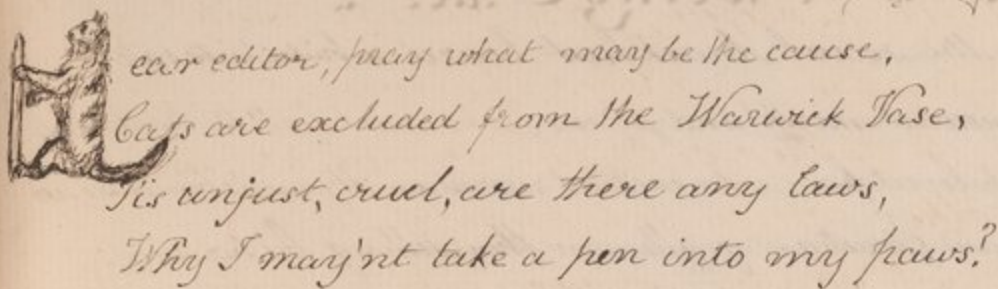 Dear editor, pray what may be the cause,
Cats are excluded from the Warwick Vase,
Tis unjust, cruel, are there any laws,
Why I may'nt take a pen into my paws?